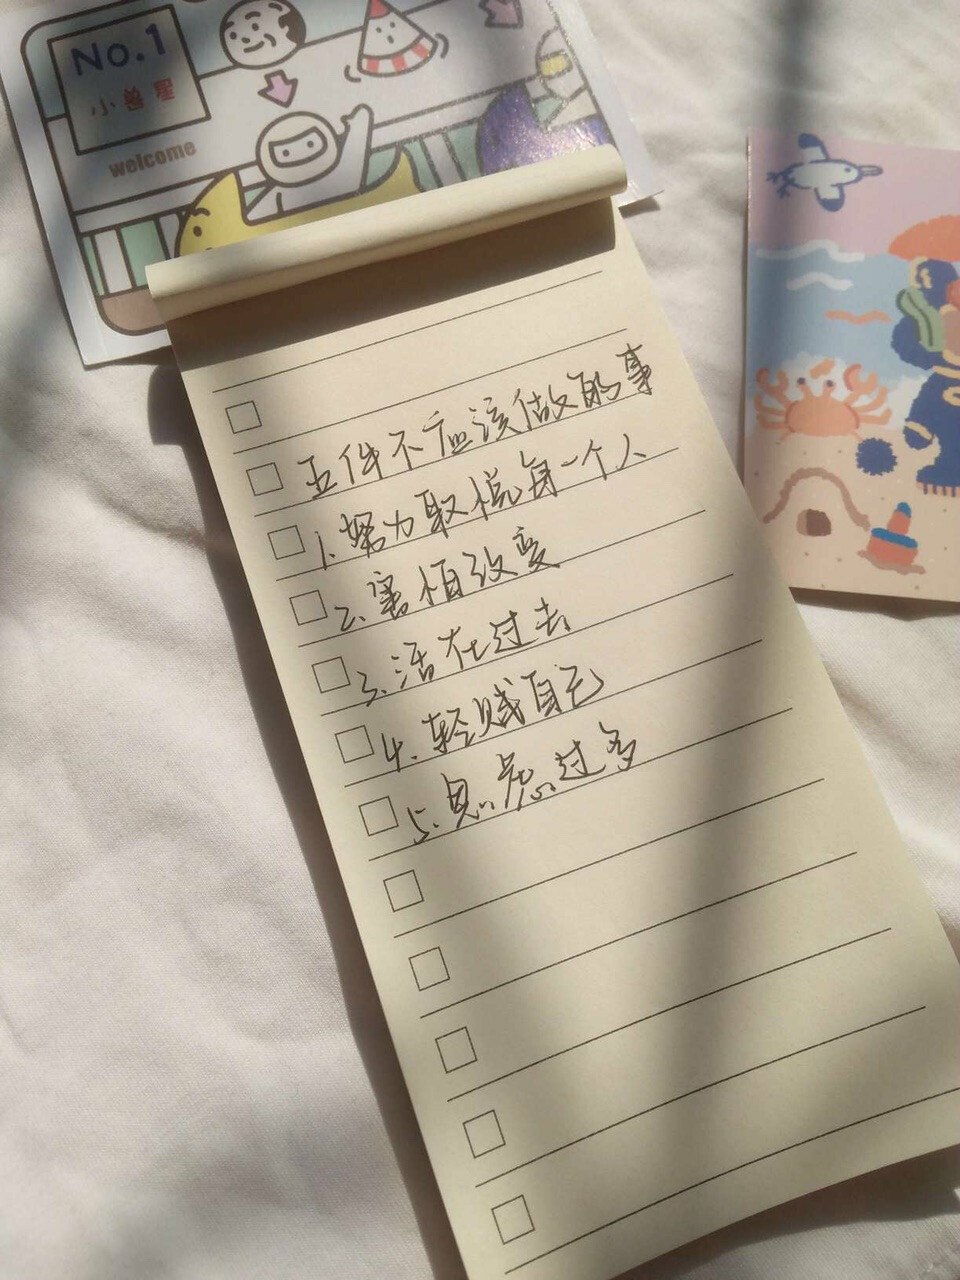 No.1
小兽星
welcome
五件不应该做的事
1.努力取悦每一个人
2.害怕改变
3.活在过去
4.轻贱自己
5.思虑过多